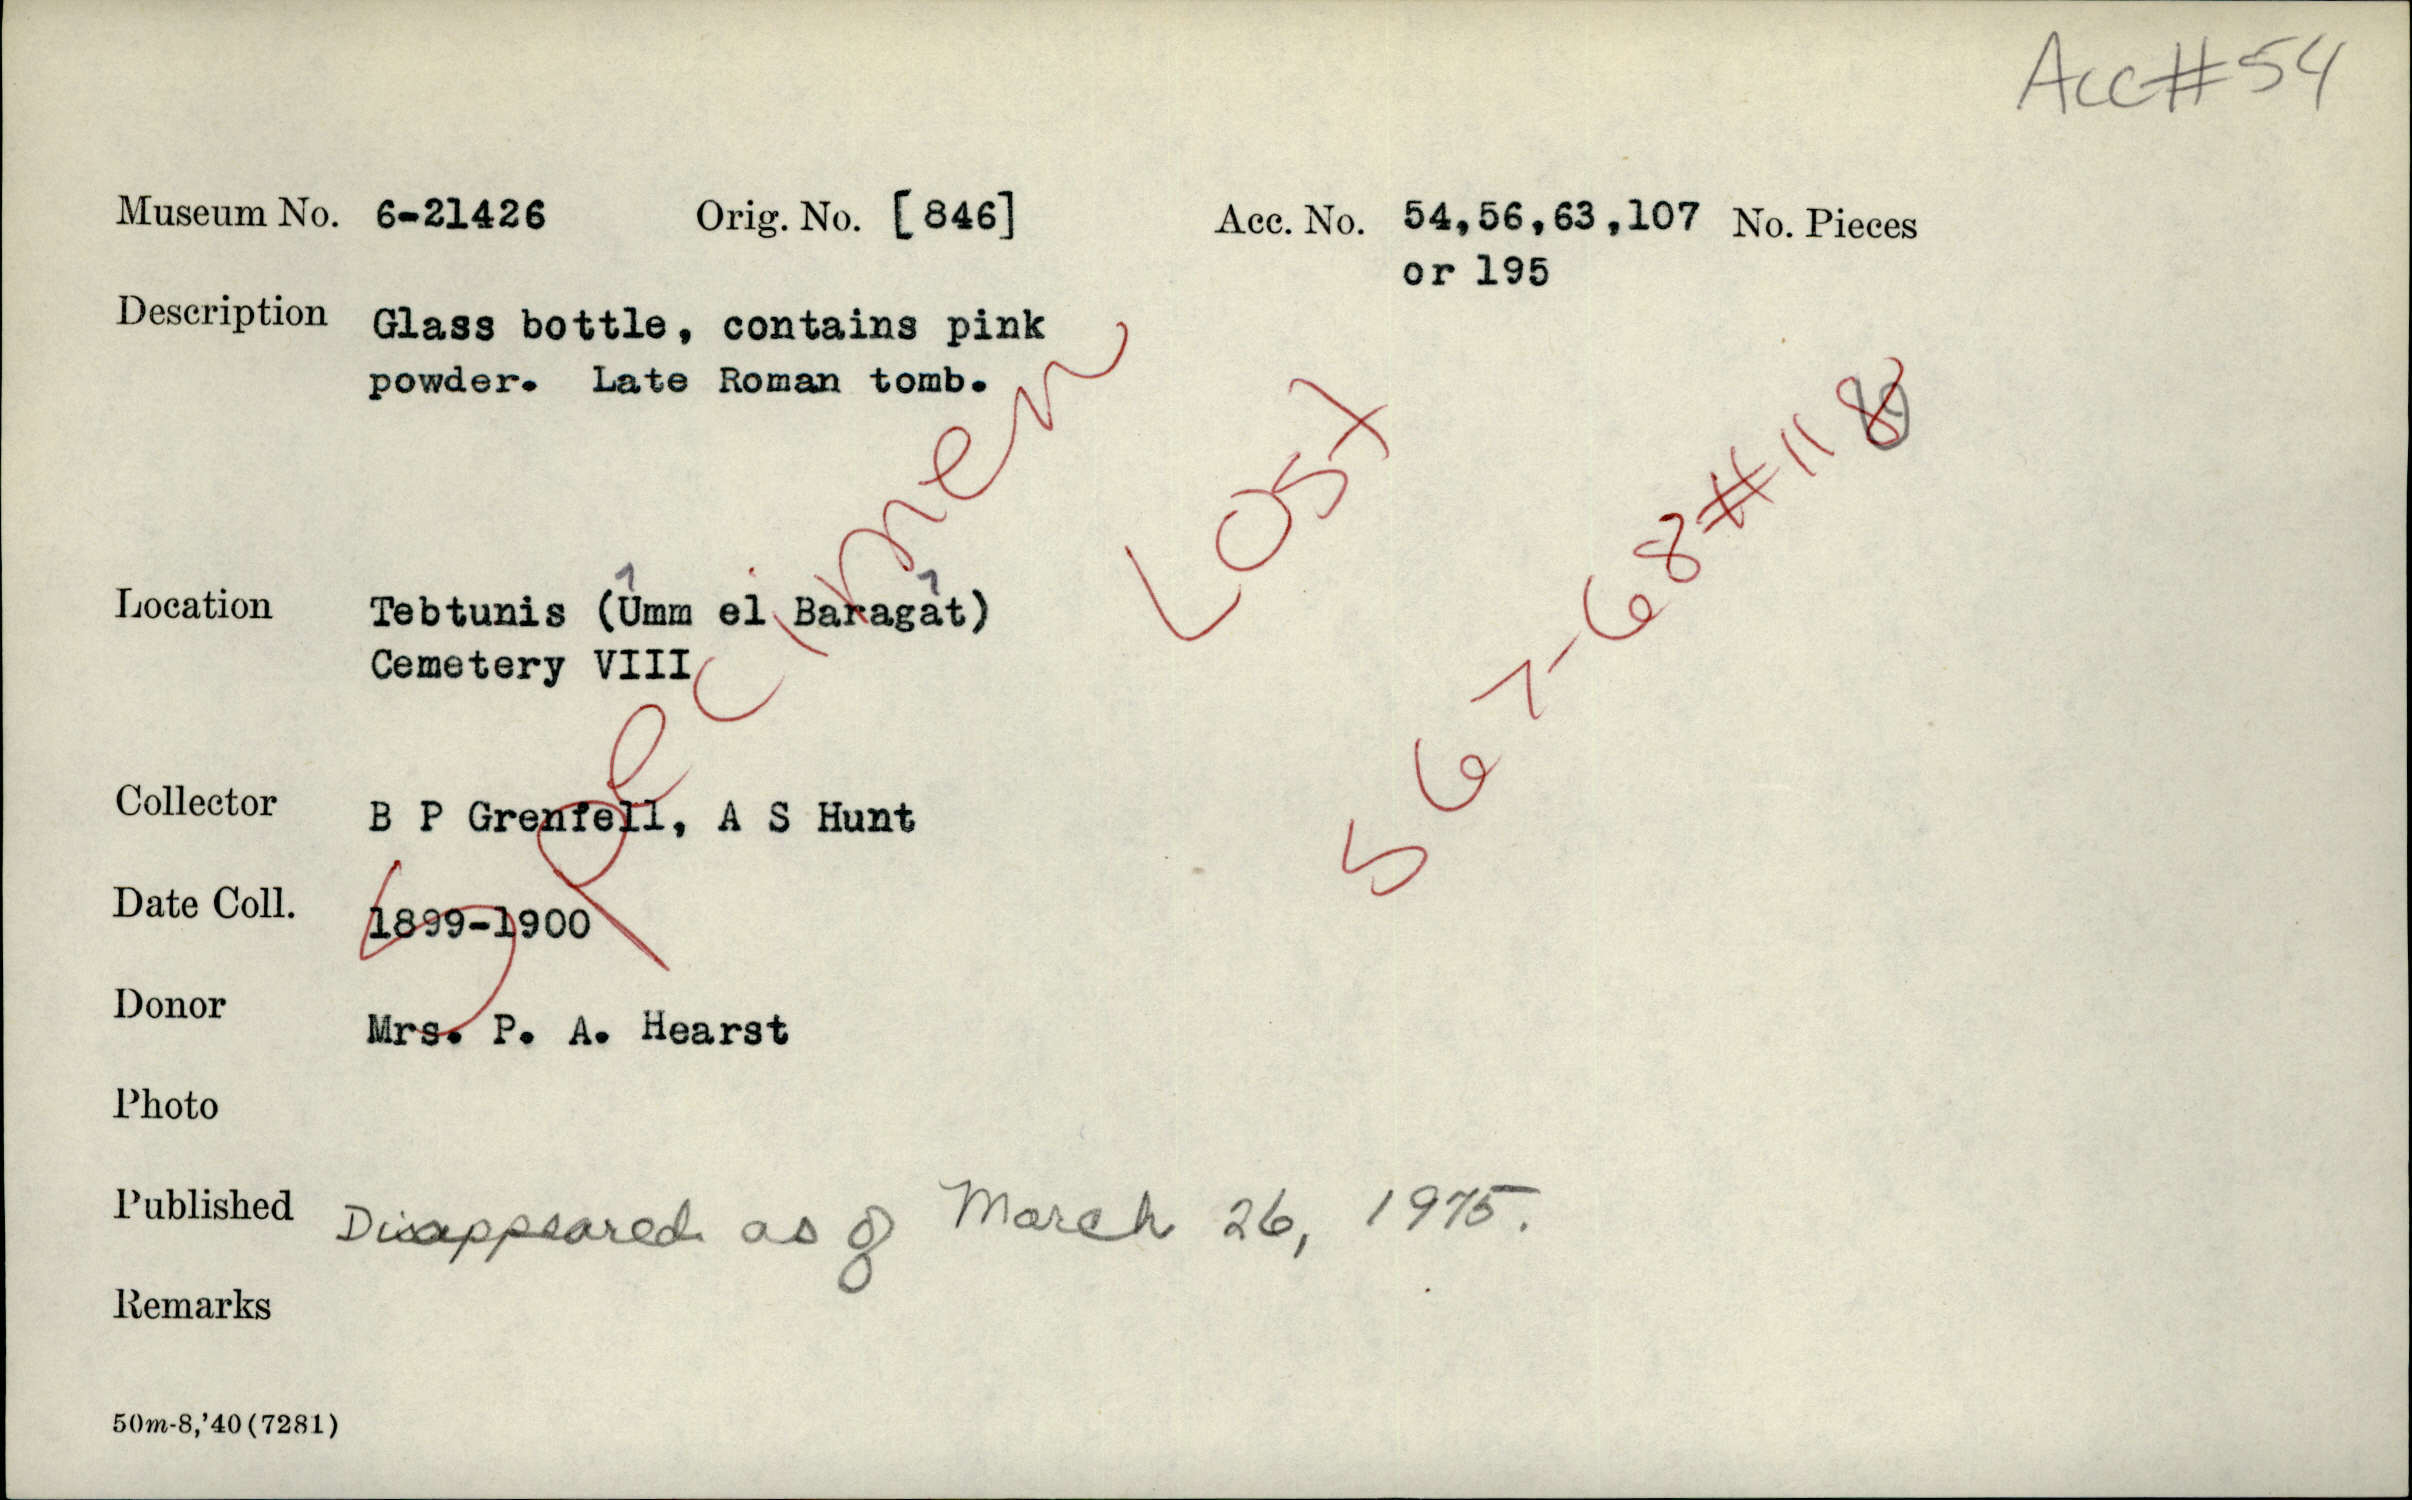 Acc#54
Museum No. 6-21426 Orig. No. [846] Acc. No. 54,56,63,107 No. Pieces
or 195
Description Glass bottle, contains pink
powder. Late Roman tomb.
Specimen
Lost
S 67-68#118
Location Tebtunis (Ûmm el Baragât)
Cemetery VIII
Collector B P Grenfell, A S Hunt
Date Coll. 1899-1900
Donor Mrs. P. A. Hearst
Photo
Published Disappeared as of March 26, 1975.
Remarks
50m-8,'40(7281)